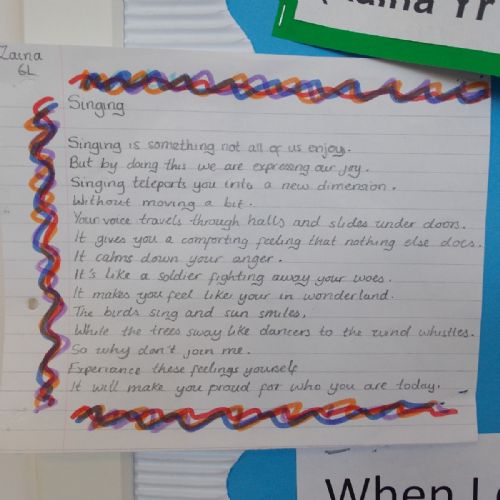 Zaina
6L
(Zaina Yr
Singing
Singing is something not all of us enjoy.
But by doing this we are expressing our joy.
Singing teleports you into a new dimension.
Without moving a bit.
Your voice travels through halls and slides under doors.
It gives you a comforting feeling that nothing else does.
It calms down your anger.
It's like a soldier fighting away your woes.
It makes you feel like your in wonderland.
The birds sing and sun smiles,
While the trees sway like dancers to the wind whistles.
So why don't join me.
Experiance these feelings yourself
It will make you proud for who you are today.
When I